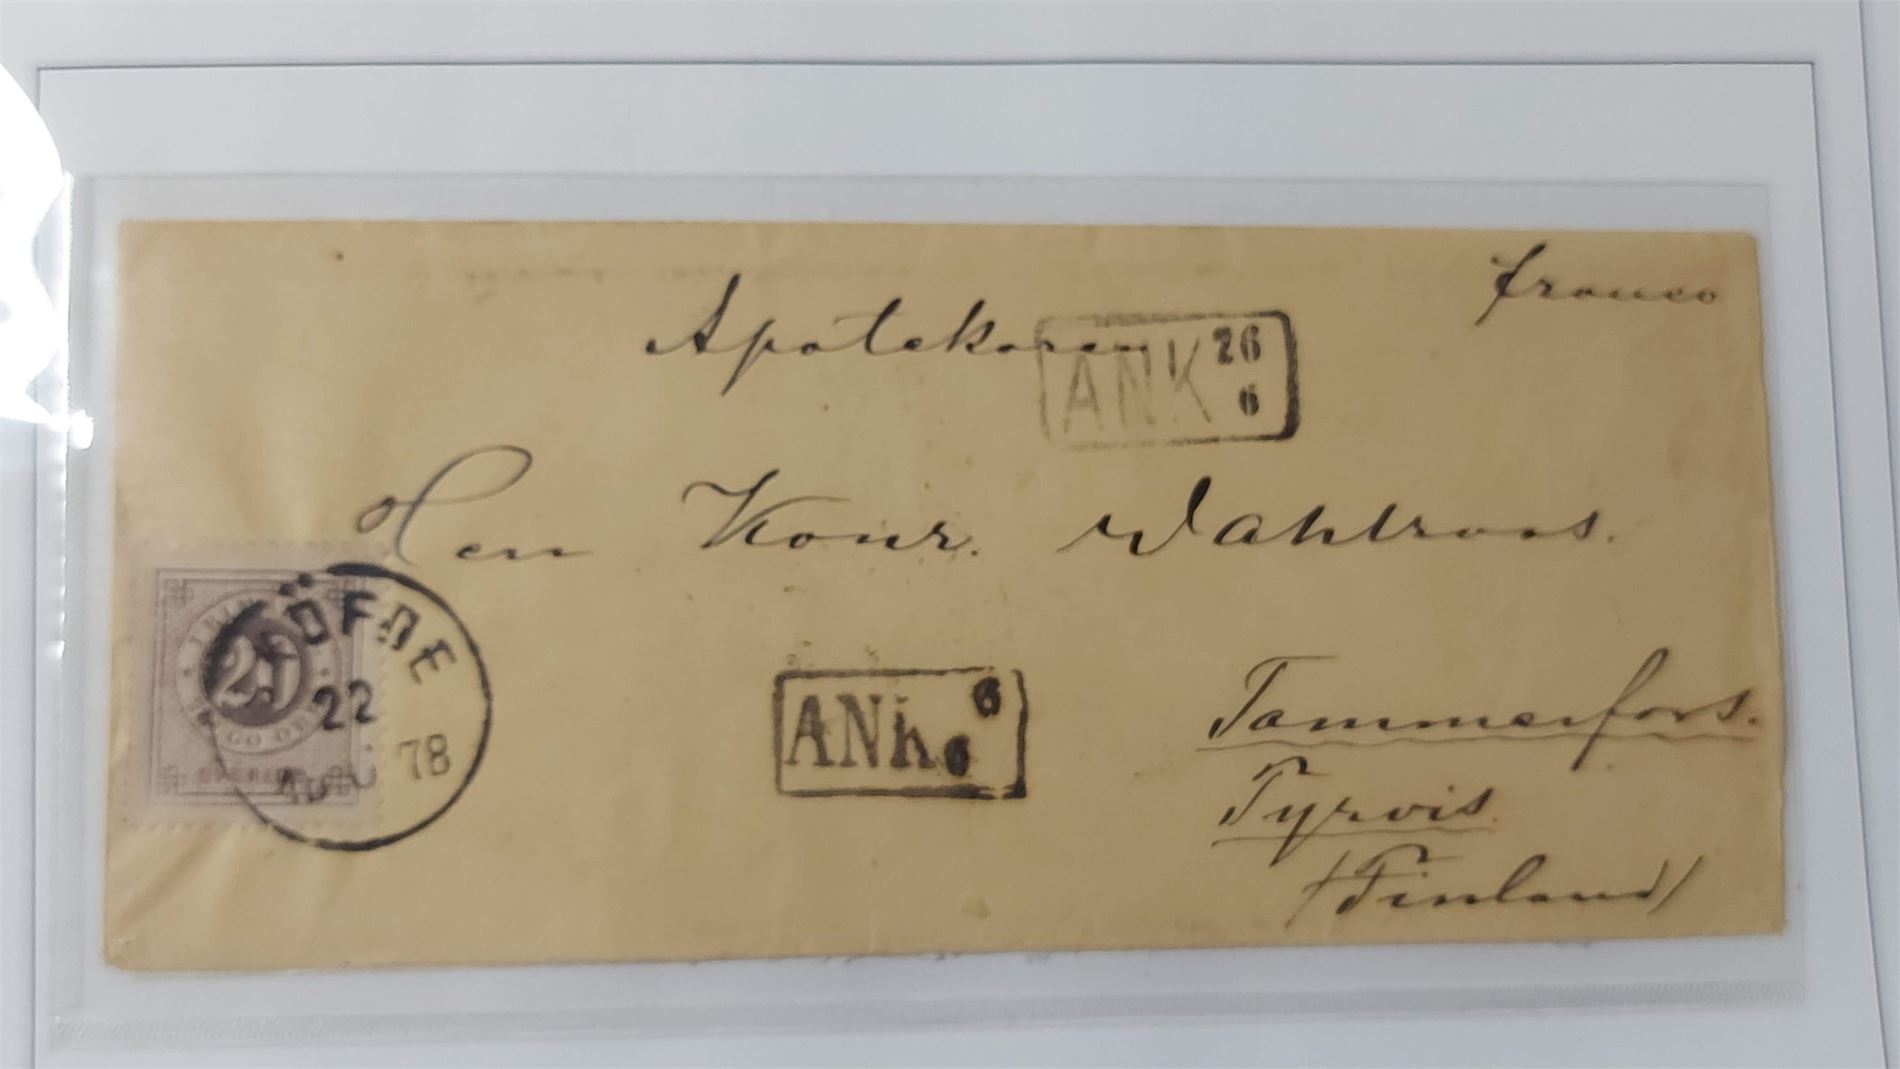 franco
Apotekaren
ANK 26
6
Herr Konr. Wahlroos.
ÖFDE
22
78
20
SVERIGE
ANK 6
6
Tammerfors.
Tyrvis
(Finland)